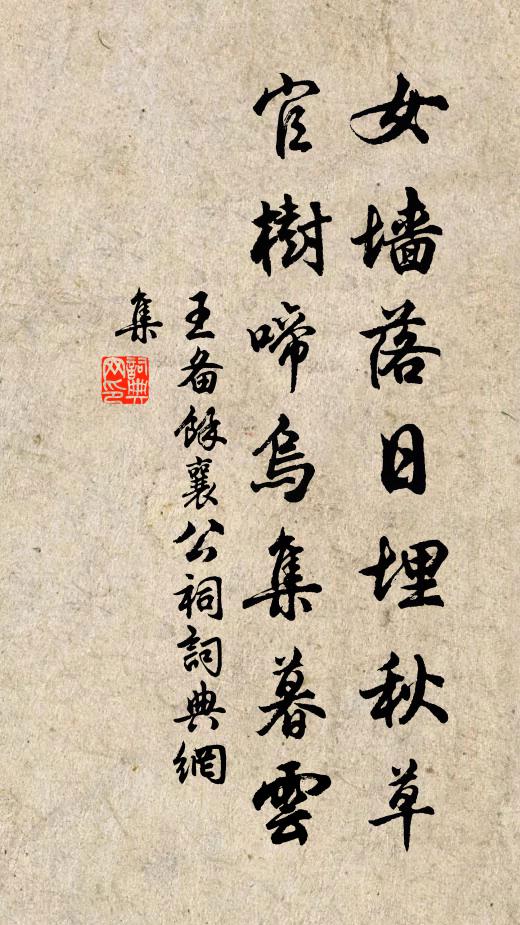 女墙落日埋秋草
官樹啼烏集暮雲
王备餘襄公祠詞典網
集
詞典網印